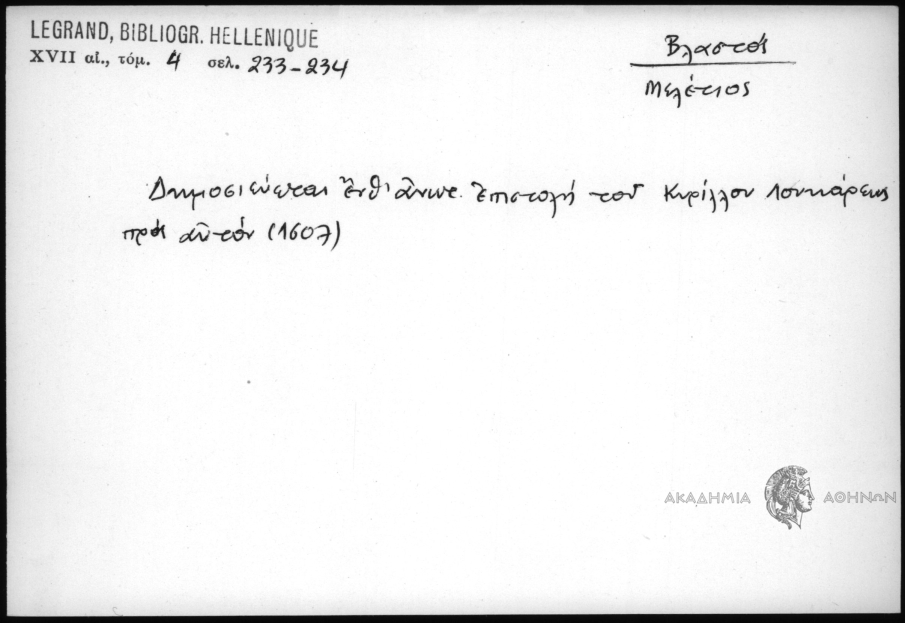 LEGRAND, BIBLIOGR. HELLENIQUE
XVII αἰ., τόμ. 4 σελ. 233-234
Βλαστός
Μελέτιος
Δημοσιεύεται ἔνθ' ἀνωτ. ἐπιστολή τοῦ Κυρίλλου Λουκάρεως
πρός αὐτόν (1607)
ΑΚΑΔΗΜΙΑ ΑΘΗΝΩΝ